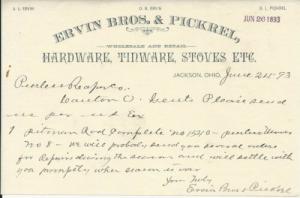 S. L. ERVIN O. B. ERVIN D. L. PICKREL
JUN 26 1893
ERVIN BROS. & PICKREL,
WHOLESALE AND RETAIL
HARDWARE, TINWARE, STOVES ETC.
JACKSON, OHIO, June 24 93
Peerless Reaper Co.
Canton O. Gents Please send
us per Ex
1 pitman Rod Complete no 1521 0 - peerless Mower
No 8 - We will probably send you several orders
for repairs during the season and will settle with
you promptly when season is over
Yours Truly
Ervin Bros & Pickrel